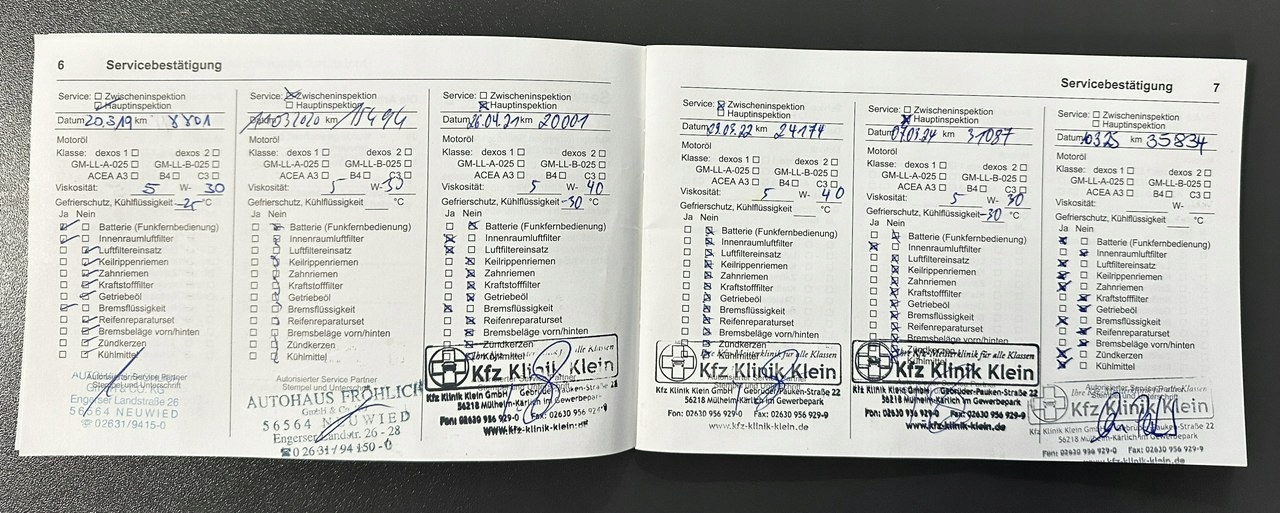 6 Servicebestätigung
Service: Zwischeninspektion
Hauptinspektion
Datum 20.3.19 km 8801
Motoröl
Klasse: dexos 1 dexos 2
GM-LL-A-025 GM-LL-B-025
ACEA A3 B4 C3
Viskosität: 5 W- 30
Gefrierschutz, Kühlflüssigkeit °C
Ja Nein
Batterie (Funkfernbedienung)
Innenraumluftfilter
Luftfiltereinsatz
Keilrippenriemen
Zahnriemen
Kraftstofffilter
Getriebeöl
Bremsflüssigkeit
Reifenreparaturset
Bremsbeläge vorn/hinten
Zündkerzen
Kühlmittel
Autorisierter Service Partner
Stempel und Unterschrift
Engerser Landstraße 26
56564 NEUWIED
☎ 02631/9415-0
Service: Zwischeninspektion
Hauptinspektion
Datum 03 2020 km
Motoröl
Klasse: dexos 1 dexos 2
GM-LL-A-025 GM-LL-B-025
ACEA A3 B4 C3
Viskosität: 5 W- 30
Gefrierschutz, Kühlflüssigkeit °C
Ja Nein
Batterie (Funkfernbedienung)
Innenraumluftfilter
Luftfiltereinsatz
Keilrippenriemen
Zahnriemen
Kraftstofffilter
Getriebeöl
Bremsflüssigkeit
Reifenreparaturset
Bremsbeläge vorn/hinten
Zündkerzen
Kühlmittel
Autorisierter Service Partner
Stempel und Unterschrift
AUTOHAUS FRÖHLICH
GmbH & Co.
56564 NEUWIED
Engerser Landstr. 26 - 28
☎ 0 26 31 / 94 150 - 0
Service: Zwischeninspektion
Hauptinspektion
Datum 26.04.21 km 20001
Motoröl
Klasse: dexos 1 dexos 2
GM-LL-A-025 GM-LL-B-025
ACEA A3 B4 C3
Viskosität: 5 W- 40
Gefrierschutz, Kühlflüssigkeit -30 °C
Ja Nein
Batterie (Funkfernbedienung)
Innenraumluftfilter
Luftfiltereinsatz
Keilrippenriemen
Zahnriemen
Kraftstofffilter
Getriebeöl
Bremsflüssigkeit
Reifenreparaturset
Bremsbeläge vorn/hinten
Zündkerzen
Kühlmittel
Ihre Kfz-Meisterklinik für alle Klassen
Kfz Klinik Klein
Kfz Klinik Klein GmbH Gebrüder-Pauken-Straße 22
56218 Mülheim-Kärlich im Gewerbepark
Fon: 02630 956 929-0 Fax: 02630 956 929-9
www.kfz-klinik-klein.de
Servicebestätigung 7
Service: Zwischeninspektion
Hauptinspektion
Datum 29.08.22 km 24174
Motoröl
Klasse: dexos 1 dexos 2
GM-LL-A-025 GM-LL-B-025
ACEA A3 B4 C3
Viskosität: 5 W- 40
Gefrierschutz, Kühlflüssigkeit °C
Ja Nein
Batterie (Funkfernbedienung)
Innenraumluftfilter
Luftfiltereinsatz
Keilrippenriemen
Zahnriemen
Kraftstofffilter
Getriebeöl
Bremsflüssigkeit
Reifenreparaturset
Bremsbeläge vorn/hinten
Zündkerzen
Kühlmittel
Ihre Kfz-Meisterklinik für alle Klassen
Kfz Klinik Klein
Kfz Klinik Klein GmbH Gebrüder-Pauken-Straße 22
56218 Mülheim-Kärlich im Gewerbepark
Fon: 02630 956 929-0 Fax: 02630 956 929-9
www.kfz-klinik-klein.de
Service: Zwischeninspektion
Hauptinspektion
Datum 07.03.24 km 31087
Motoröl
Klasse: dexos 1 dexos 2
GM-LL-A-025 GM-LL-B-025
ACEA A3 B4 C3
Viskosität: 5 W- 30
Gefrierschutz, Kühlflüssigkeit -30 °C
Ja Nein
Batterie (Funkfernbedienung)
Innenraumluftfilter
Luftfiltereinsatz
Keilrippenriemen
Zahnriemen
Kraftstofffilter
Getriebeöl
Bremsflüssigkeit
Reifenreparaturset
Bremsbeläge vorn/hinten
Zündkerzen
Ihre Kfz-Meisterklinik für alle Klassen
Kfz Klinik Klein
Kfz Klinik Klein GmbH Gebrüder-Pauken-Straße 22
56218 Mülheim-Kärlich im Gewerbepark
Fon: 02630 956 929-0 Fax: 02630 956 929-9
www.kfz-klinik-klein.de
Service: Zwischeninspektion
Hauptinspektion
Datum 03.25 km 35834
Motoröl
Klasse: dexos 1 dexos 2
GM-LL-A-025 GM-LL-B-025
ACEA A3 B4 C3
Viskosität: W-
Gefrierschutz, Kühlflüssigkeit °C
Ja Nein
Batterie (Funkfernbedienung)
Innenraumluftfilter
Luftfiltereinsatz
Keilrippenriemen
Zahnriemen
Kraftstofffilter
Getriebeöl
Bremsflüssigkeit
Reifenreparaturset
Bremsbeläge vorn/hinten
Zündkerzen
Kühlmittel
Autorisierter Service Partner
Kfz Klinik Klein
Kfz Klinik Klein GmbH Gebrüder-Pauken-Straße 22
56218 Mülheim-Kärlich im Gewerbepark
Fon: 02630 956 929-0 Fax: 02630 956 929-9
www.kfz-klinik-klein.de